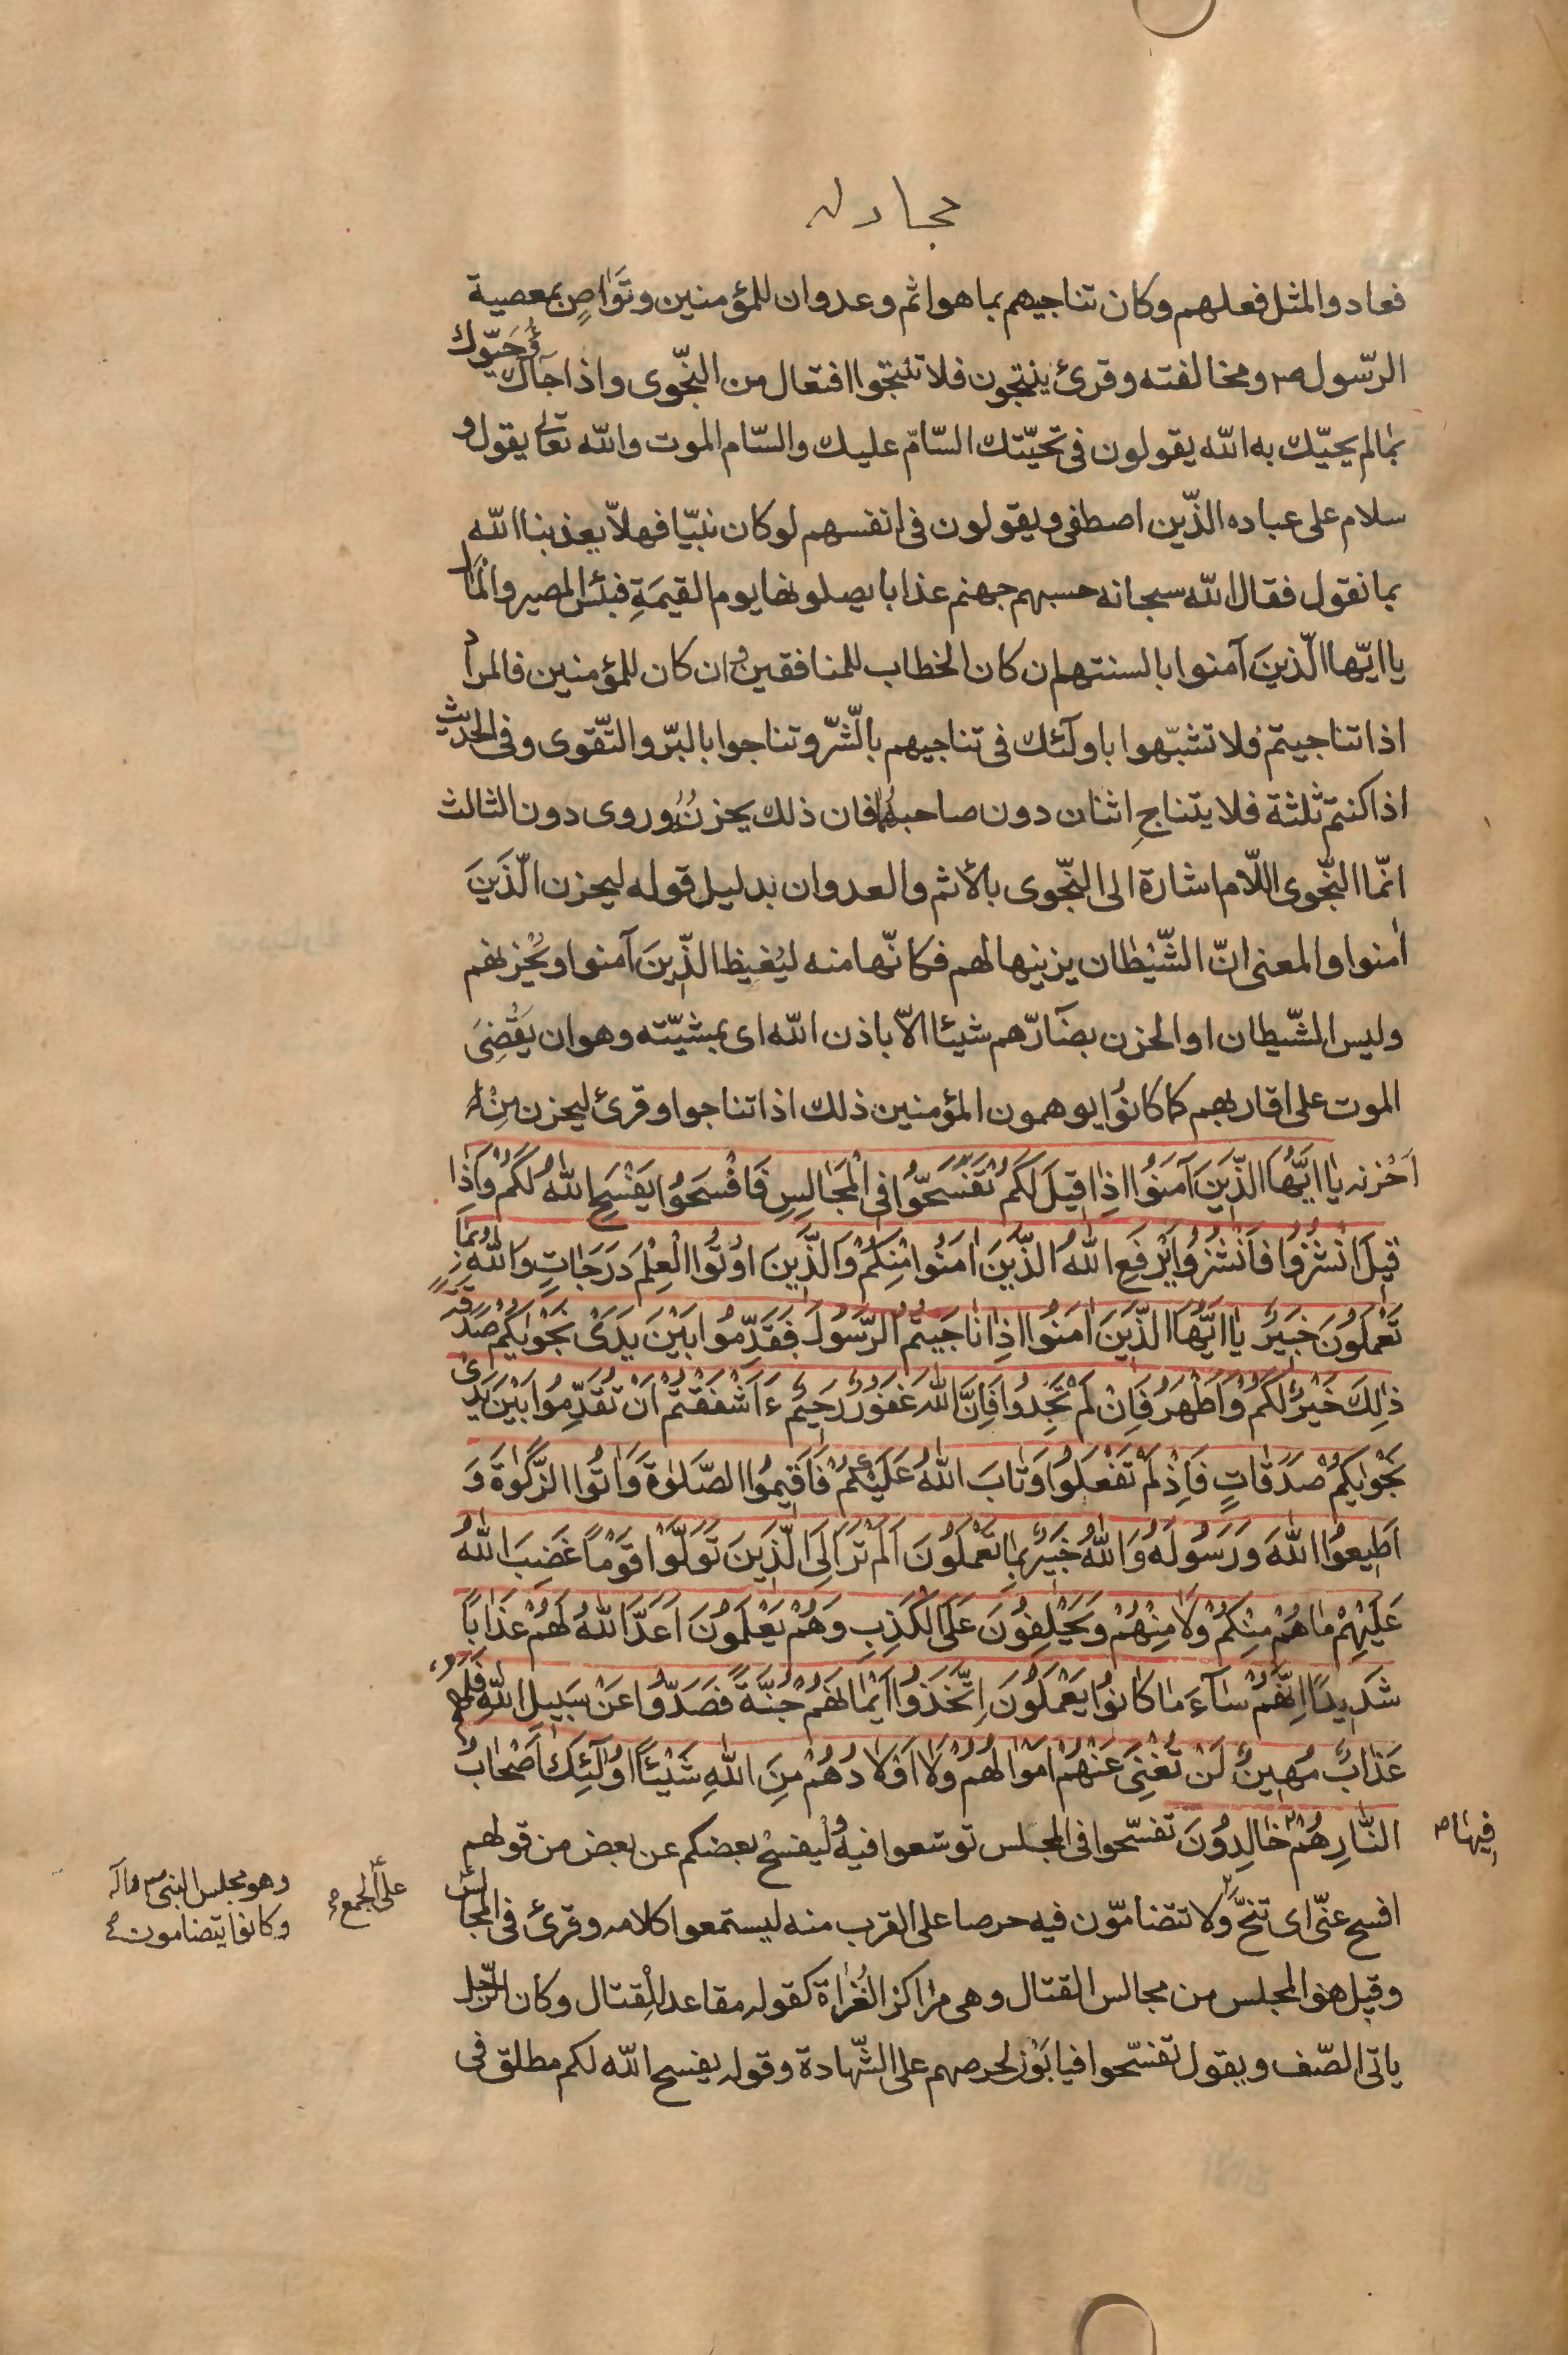 مجادله
فعادوا لمثل فعلهم وكان تناجيهم بما هو اثم وعدوان للمؤمنين وتواصٍ بمعصية
الرّسول ص ومخالفته وقرئ ينتجون فلا تنتجوا افتعال من النّجوى واذا جآؤك حيّوك
بما لم يحيّك به الله يقولون فى تحيّتك السّامّ عليك والسّام الموت والله تعالى يقول و
سلام على عباده الذّين اصطفى ويقولون فى انفسهم لو كان نبيّا فهلاّ يعذبنا الله
بما نقول فقال الله سبحانه حسبهم جهنم عذابا يصلونها يوم القيمَةِ فبئس المصير والمَآل
يا ايّها الّذينَ آمنوا بالسنتهم ان كان الخطاب للمنافقين وان كان للمؤمنين فالمراد
اذا تناجيتم فلا تشبّهوا باولٓئك فى تناجيهم بالشّر وتناجوا بالبرّ والتّقوى وفى الحديث
اذا كنتم ثلثة فلا يتناجِ اثنان دون صاحبهما فان ذلك يحزنُهُ وروى دون الثالث
انّما النّجوى اللّام اشارة الى النّجوى بالأثم والعدوان بدليل قوله ليحزن الّذَينَ
اٰمنوا والمعنى انّ الشّيْطان يزينها لهم فكانّها منه ليُغيظ الذّينَ آمنوا ويُحْزنهم
وليس الشّيطان او الحزن بضٓارّهم شيئا الاّ باذن الله اى بمشيّته وهو ان يَقْضِىَ
الموت على اقاربهم كما كانوُا يوهمون المؤمنين ذلك اذا تناجوا وقرئ ليحزن مِنْ
اَحْزنه يٰا ايَّهُا الذّيَنَ آمَنوُا اذِٰا قيلَ لَكمُْ تَفَسَّحوُا فِى الْمَجٰالِسِ فَافْسَحوُا يَفْسَحِ اللهُ لَكُمْ وَاِذٰا
قيلَ انْشُزوُا فَانْشُزوُا يَرْفَعِ اللهُ الذّيَنَ اٰمَنُوا مِنْكمُْ وَالذَّينَ اوُتُوا الْعِلْمَ دَرَجٰاتٍ وَاللهُ بِمٰا
تَعْمَلُونَ خَبيرٌ يٰا ايَّهَا الذّيَنَ اٰمَنُوا اذِٰا نٰاجَيْتُمُ الرَّسُولَ فَقَدِّمُوا بَيْنَ يَدَىْ نَجْوٰيكُمْ صَدَقَةً
ذٰلِكَ خَيْرٌ لَكُمْ وَاَطْهَرُ فَاِنْ لَمْ تَجِدُوا فَاِنَّ اللهَ غَفُورٌ رَحيٌم ءَاَشْفَقْتُمْ اَنْ تُقَدِّمُوا بَيْنَ يَدَىْ
نَجْوٰيكُمْ صَدَقٰاتٍ فَاِذْ لَمْ تَفْعَلُوا وَتٰابَ اللهُ عَلَيْكُمْ فَاَقيمُوا الصَّلٰوةَ وَاٰتُوا الزَّكٰوةَ وَ
اَطيعُوا اللهَ وَرَسُولَهُ وَاللهُ خَبيرٌ بِمٰا تَعْمَلُونَ اَلَمْ تَرَ اِلَى الَّذينَ تَوَلَّوْا قَوْمًا غَضِبَ اللهُ
عَلَيْهِمْ مٰا هُمْ مِنْكُمْ وَلٰا مِنْهُمْ وَيَحْلِفُونَ عَلَى الْكَذِبِ وَهُمْ يَعْلَمُونَ اَعَدَّ اللهُ لَهُمْ عَذٰابًا
شَديدًا اِنَّهُمْ سٰآءَ مٰا كٰانُوا يَعْمَلُونَ اِتَّخَذُوا اَيْمٰانَهُمْ جُنَّةً فَصَدُّوا عَنْ سَبيلِ اللهِ فَلَهُمْ
عَذٰابٌ مُهينٌ لَنْ تُغْنِىَ عَنْهُمْ اَمْوٰالُهُمْ وَلٰا اَوْلٰادُهُمْ مِنَ اللهِ شَيْئًا اُولٰٓئِكَ اَصْحٰابُ
النّٰارِ هُمْ خٰالِدُونَ تفسّحوا فى المجلس توسّعوا فيهُ وليفسحْ بعضكم عن بعض من قولهم
فيهٰا ص
افسح عنّى اى تنحَّ ولا تتضامّون فيه حرصا على القرب منه ليستمعوا كلامه وقرئ فى المجالس
على الجمع
وهو مجلس النبى ص وآله
وكانوا يتضامون
وقيل هو المجلس من مجالس القتال وهى مراكز الغُزاة كقوله مقاعد للِقتال وكان الرّجل
ياتى الصّف ويقول تفسّحوا فيابَوْن لحرصهم على الشّهادة وقوله يفسح الله لكم مطلق فى